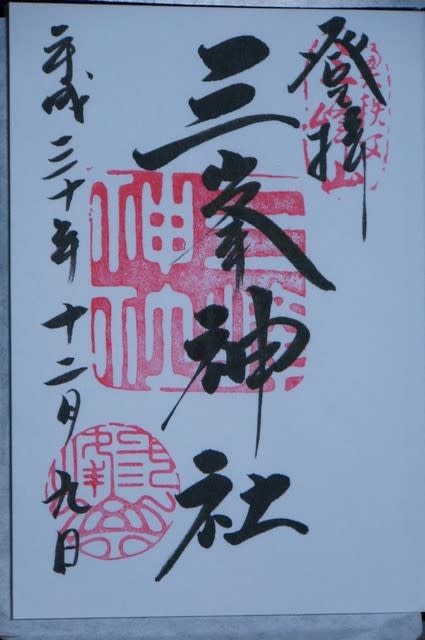 登拝
三峯神社
平成三十年十二月九日